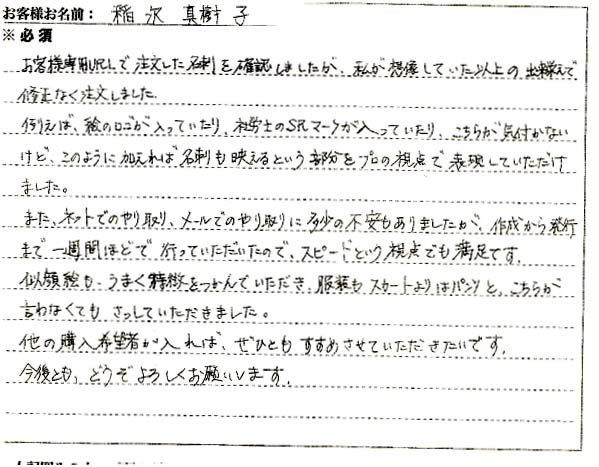 お客様お名前： 稲沢 真樹子
※必須
お客様専用URLで注文した名刺を確認しましたが、私が想像していた以上の出来栄えで
修正なく注文しました。
例えば、絵のロゴが入っていたり、社労士のSRマークが入っていたり、こちらが気付かない
けど、このように加えれば名刺も映えるという部分をプロの視点で表現していただけ
ました。
また、ネットでのやり取り、メールでのやり取りに多少の不安もありましたが、作成から発行
まで一週間ほどで行っていただいたので、スピードという視点でも満足です。
似顔絵も、うまく特徴をつかんでいただき、服装もスカートよりはパンツと、こちらが
言わなくてもさっしていただきました。
他の購入希望者が入れば、ぜひともすすめさせていただきたいです。
今後とも、どうぞよろしくお願いします。